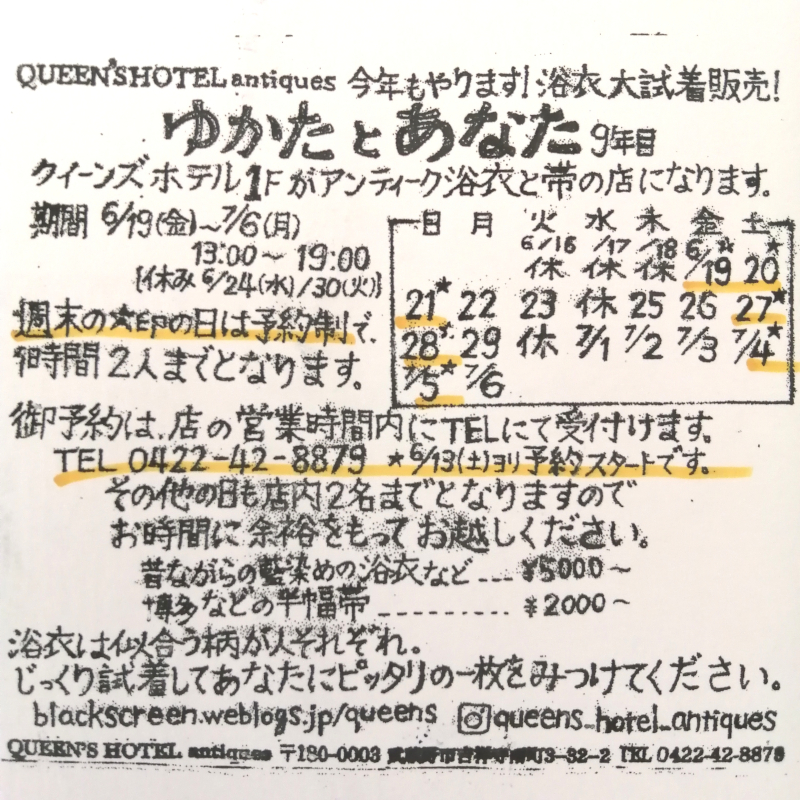 QUEEN'S HOTEL antiques 今年もやります!浴衣大試着販売!
ゆかたとあなた 9年目
クイーンズホテル1Fがアンティーク浴衣と帯の店になります。
期間 6/19(金)〜7/6(月)
13:00〜19:00
{休み 6/24(水)/30(火)}
週末の★印の日は予約制で、
1時間2人までとなります。
日 月 火 水 木 金 土
6/16 /17 /18 6/19★ 20★
休 休 休
21★ 22 23 休 25 26 27★
28★ 29 休 7/1 7/2 7/3 7/4★
7/5★ 7/6
御予約は、店の営業時間内にTELにて受付けます。
TEL 0422-42-8879 ★6/13(土)ヨリ予約スタートです。
その他の日も店内2名までとなりますので
お時間に余裕をもってお越しください。
昔ながらの藍染めの浴衣など---¥5000〜
博多などの半幅帯---------¥2000〜
浴衣は似合う柄が人それぞれ。
じっくり試着してあなたにピッタリの一枚をみつけてください。
blackscreen.weblogs.jp/queens queens_hotel_antiques
QUEEN'S HOTEL antiques 〒180-0003 武蔵野市吉祥寺南町3-32-2 TEL 0422-42-8879